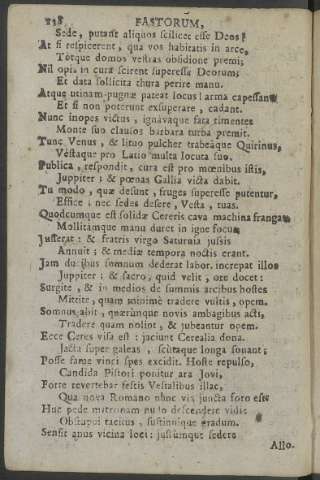 228 FASTORUM,
Sede, putast aliquos scilicet esse Deos!
At si respicerent, qua vos habitatis in arce,
Totque domos vestras obsidione premi;
Nil opis in cura scirent superesse Deorum;
Et data sollicita thura perire manu.
Atque utinam pugnæ pateat locus! arma capessant,
Et si non poterunt exsuperare, cadant.
Nunc inopes victus, ignavaque fata timentes
Monte suo clausos barbara turba premit.
Tunc Venus, & lituo pulcher trabeaque Quirinus,
Vestaque pro Latio multa locuta suo.
Publica, respondit, cura est pro mœnibus istis,
Juppiter; & pœnas Gallia victa dabit.
Tu modo, quæ desunt, fruges superesse putentur,
Effice; nec sedes desere, Vesta, tuas.
Quodcumque est solidæ Cereris cava machina frangat,
Mollitamque manu duret in igne focus.
Jusserat: & fratris virgo Saturnia jussis
Annuit; & mediæ tempora noctis erant.
Jam ducibus somnum dederat labor. increpat illos
Juppiter; & sacro, quid velit, ore docet:
Surgite, & in medios de summis arcibus hostes
Mittite, quam minimè tradere vultis, opem.
Somnus abit, quærunque novis ambagibus acti,
Tradere quam nolint, & jubeantur opem.
Ecce Ceres visa est: jaciunt Cerealia dona.
Jacta super galeas, scutaque longa sonant;
Posse fame vinci spes excidit. Hoste repulso,
Candida Pistori ponitur ara Jovi.
Forte revertebar festis Vestalibus illac,
Qua nova Romano nunc via juncta foro est:
Huc pede matronam nudo descendere vidi:
Obstupui tacitus, sustinuique gradum.
Sensit anus vicina loci: jussumque sedere
Allo-